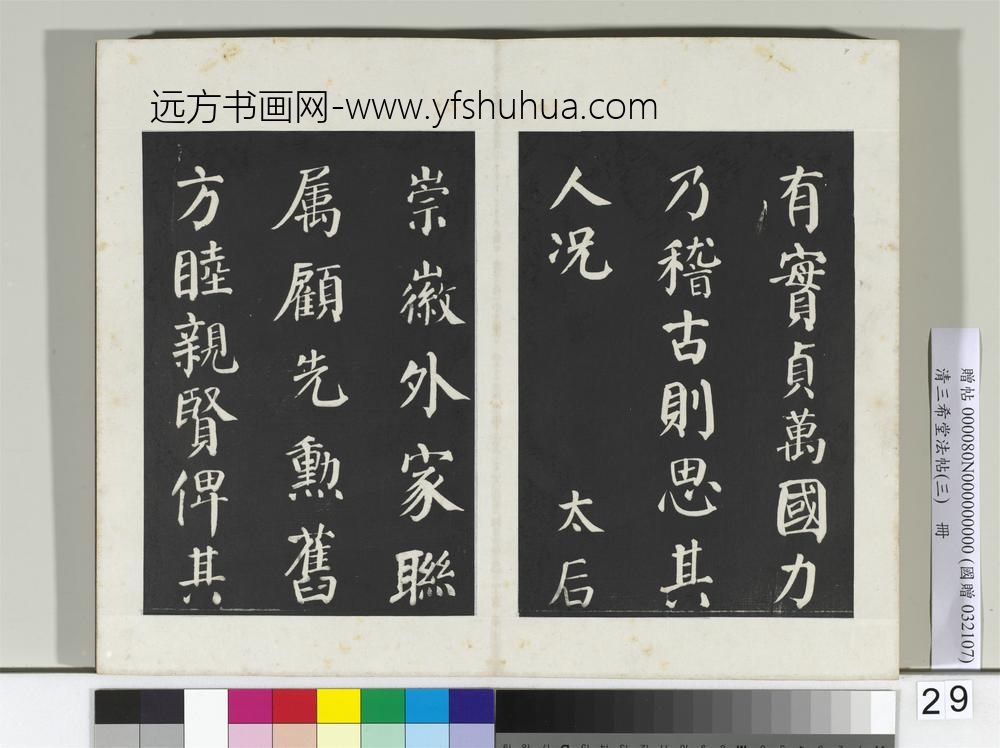 远方书画网-www.yfshuhua.com
有實貞萬國力
乃稽古則思其
人况 太后
崇徽外家聯
属顧先勳舊
方睦親賢俾其
贈帖 000080N000000000 (國贈 032107)
清三希堂法帖(三) 冊
29